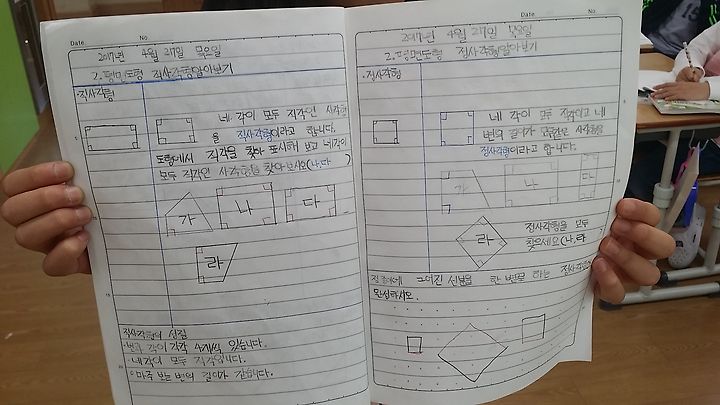 Date. No.
2017년 4월 27일 목요일
2. 평면도형 직사각형알아보기
·직사각형
네 각이 모두 직각인 사각형
을 직사각형이라고 합니다.
도형에서 직각을 찾아 표시해 보고 네각이
모두 직각인 사각형을 찾아보시오(나,다 )
가 나 다
라
직사각형의 성질
·변과 각이 각각 4개씩 있습니다.
·네각이 모두 직각입니다.
·마주 보는 변의 길이가 같습니다.
Date. No.
2017년 4월 27일 목요일
2. 평면도형 정사각형 알아보기
·정사각형
네 각이 모두 직각이고 네
변의 길이가 모두같은 사각형을
정사각형이라고 합니다.
가 나 다
라
정사각형을 모두
찾으세요(나,라
그어진 선분을 한 변으로 하는 정사각형을
완성하시오.